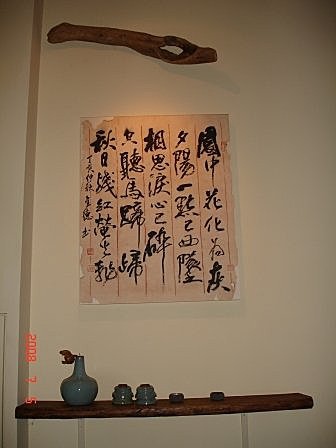 園中花化為灰
夕陽一點已西墜
相思淚心已碎
空聽馬蹄歸
秋日殘紅螢火飛
丁亥仲秋
書
2008 7 5